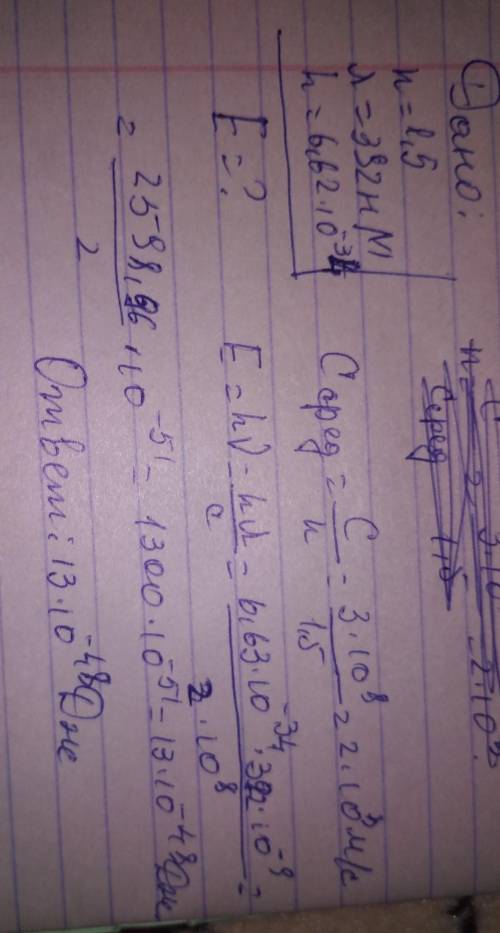 Дано:
n = 1,5
λ = 392 нм
h = 6,62·10⁻³⁴
E = ?
Cсред = C/n = 3·10⁸/1,5 = 2·10⁸ м/с
E = hν = hλ/c = 6,63·10⁻³⁴·392·10⁻⁹/2·10⁸ =
= 2598,96·10⁻⁵¹/2 = 1300·10⁻⁵¹ = 13·10⁻⁴⁸ Дж
Ответ: 13·10⁻⁴⁸ Дж